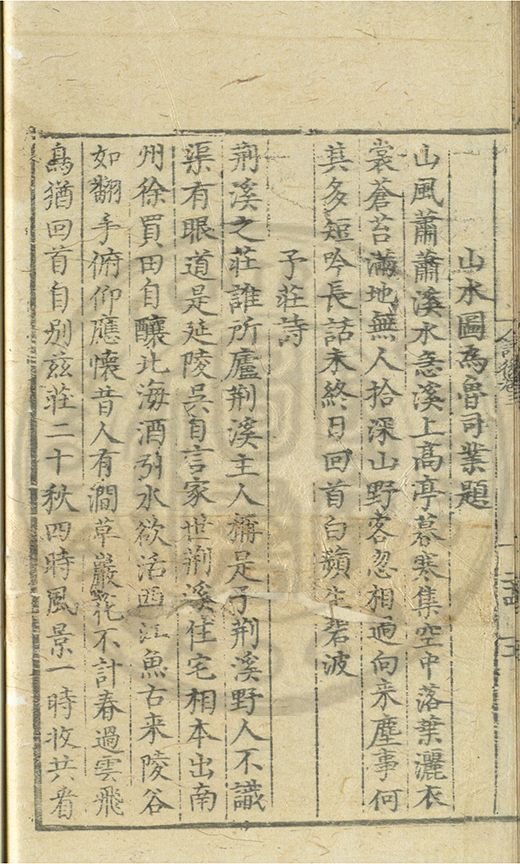 山水圖為魯司業題
山風蕭蕭溪水急溪上高亭暮寒集空中落葉灑衣
裳蒼苔滿地無人拾深山野客忽相過向来塵事何
其多短吟長話未終日回首白蘋生碧波
予莊詩
荆溪之莊誰所廬荆溪主人稱是予荆溪野人不識
渠有眼道是延陵吳自言家世荆溪住宅相本出南
州徐買田自釀北海酒引水欲活西江魚古来陵谷
如翻手俯仰應懷昔人有澗草巖花不計春過雲飛
鳥猶回首自別兹莊二十秋四時風景一時收共看